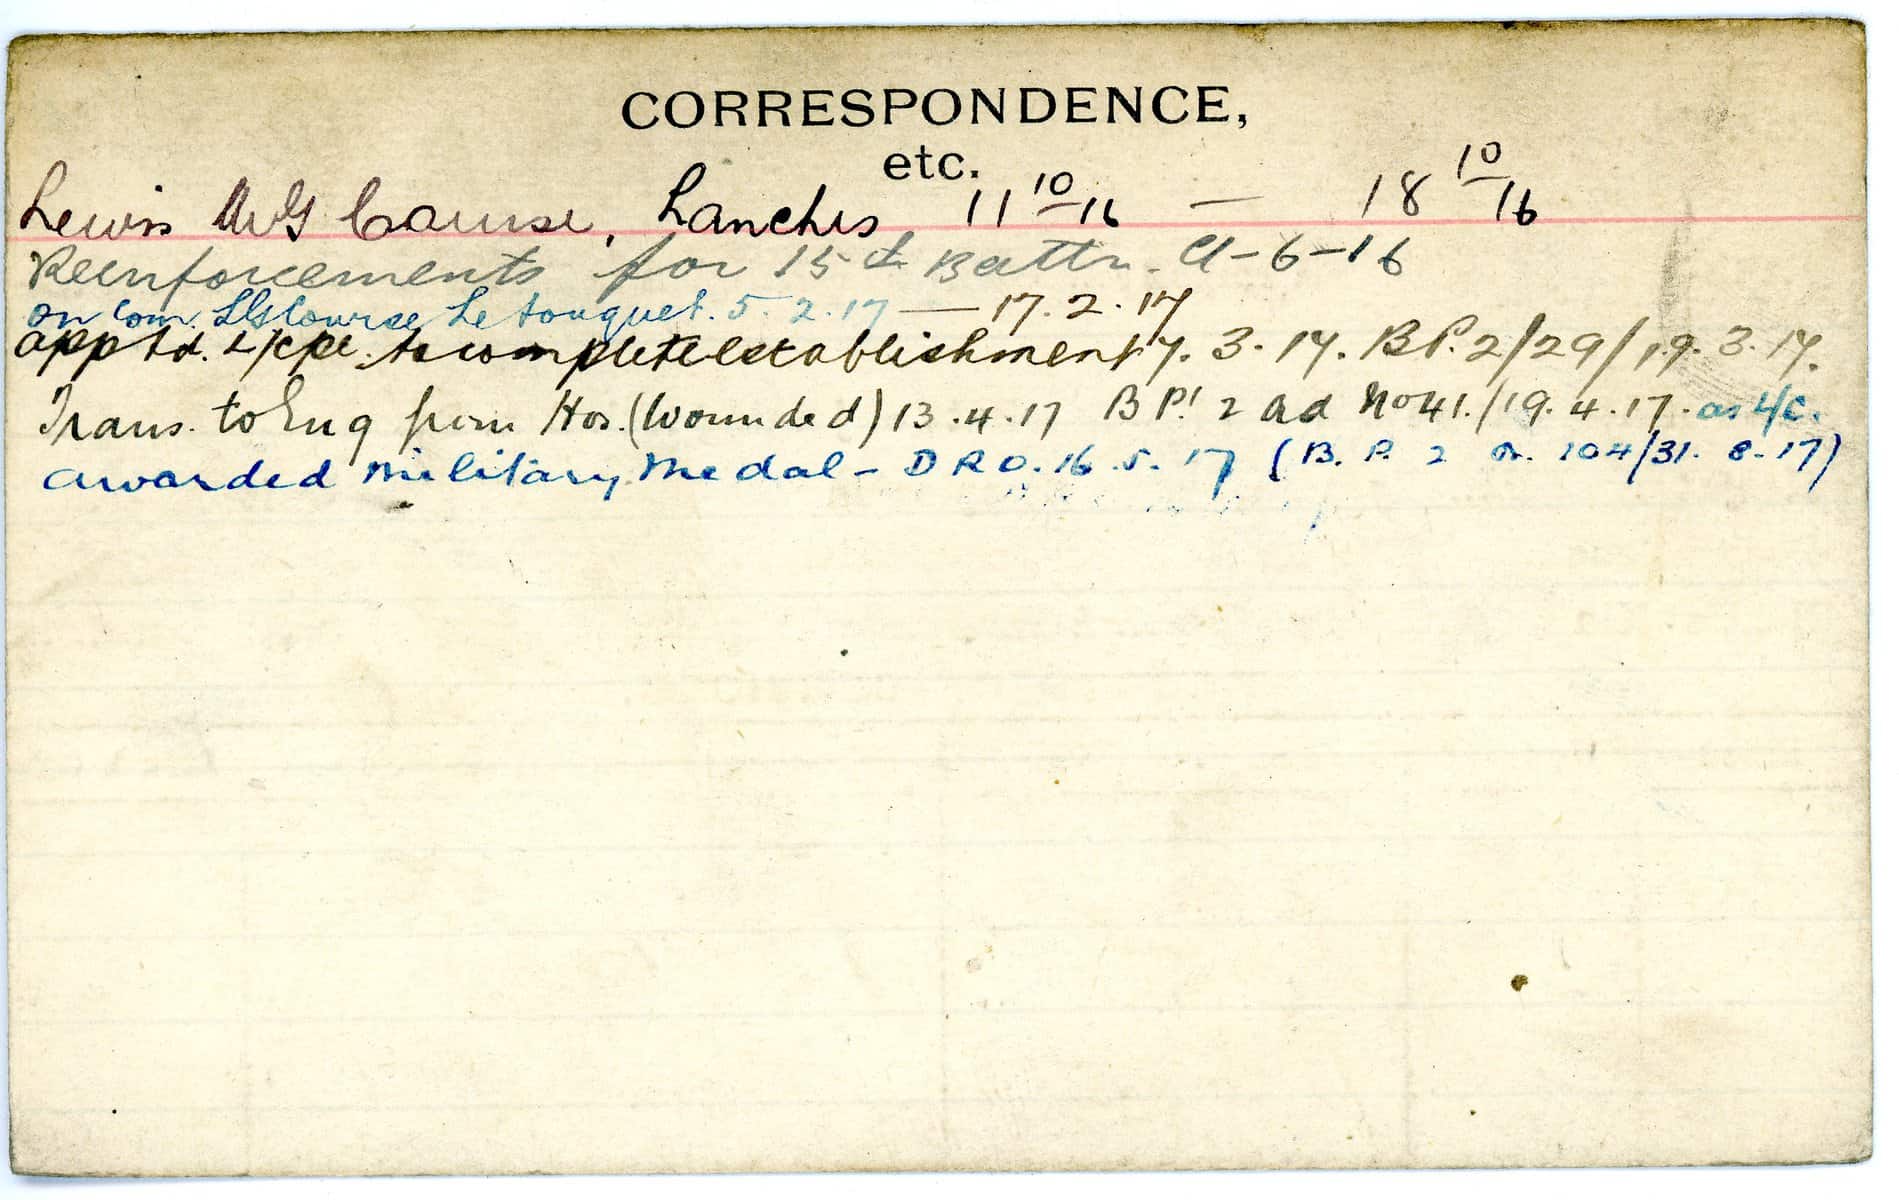 CORRESPONDENCE,
etc.
Lewis M G Course, Lanches 11 10/16 — 18 10/16
Reinforcements for 15th Battn. 6-16
on Com. LG Course Le touquet. 5.2.17 — 17.2.17
apptd. L/Cpl. to complete establishment 7.3.17. BP.2/29/19.3.17.
Trans. to Eng from Hos. (Wounded) 13.4.17 BP! 2 ad No 41./19.4.17. as L/C.
awarded Military Medal - DRO. 16.5.17 (B.P. 2 or. 104/31.8.17)